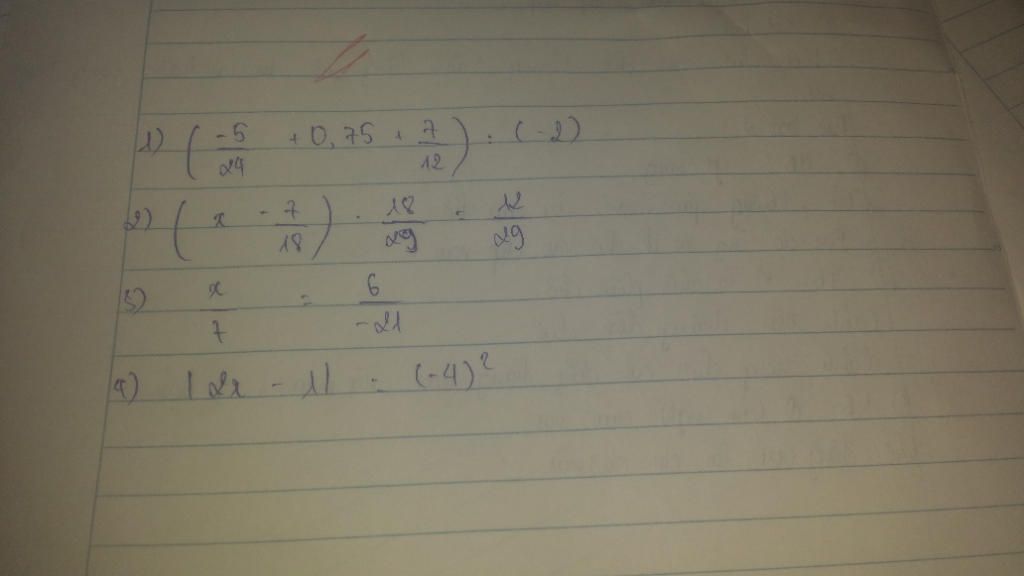 1) ( -5/24 + 0,75 + 7/12 ) : (-2)
2) ( x - 7/18 ) . 18/29 = 12/29
3) x/7 = 6/-21
4) |2x - 1| = (-4)²